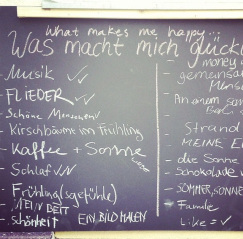 What makes me happy...
Was macht mich glück
- Musik ✓✓
- FLIEDER ✓✓
- Schöne Menschen ✓
- Kirschbäume im Frühling
- Kaffee + Sonne
- Schlaf
- Frühling(sgefühle)
- MEIN BETT
- schönheit
EIN BILD MALEN
- money
- gemeinsa
- An einem
- Strand
- MEINE
- die Sonne
- Schokolade
- SOMMER, SONNE
- Familie
Like = ✓